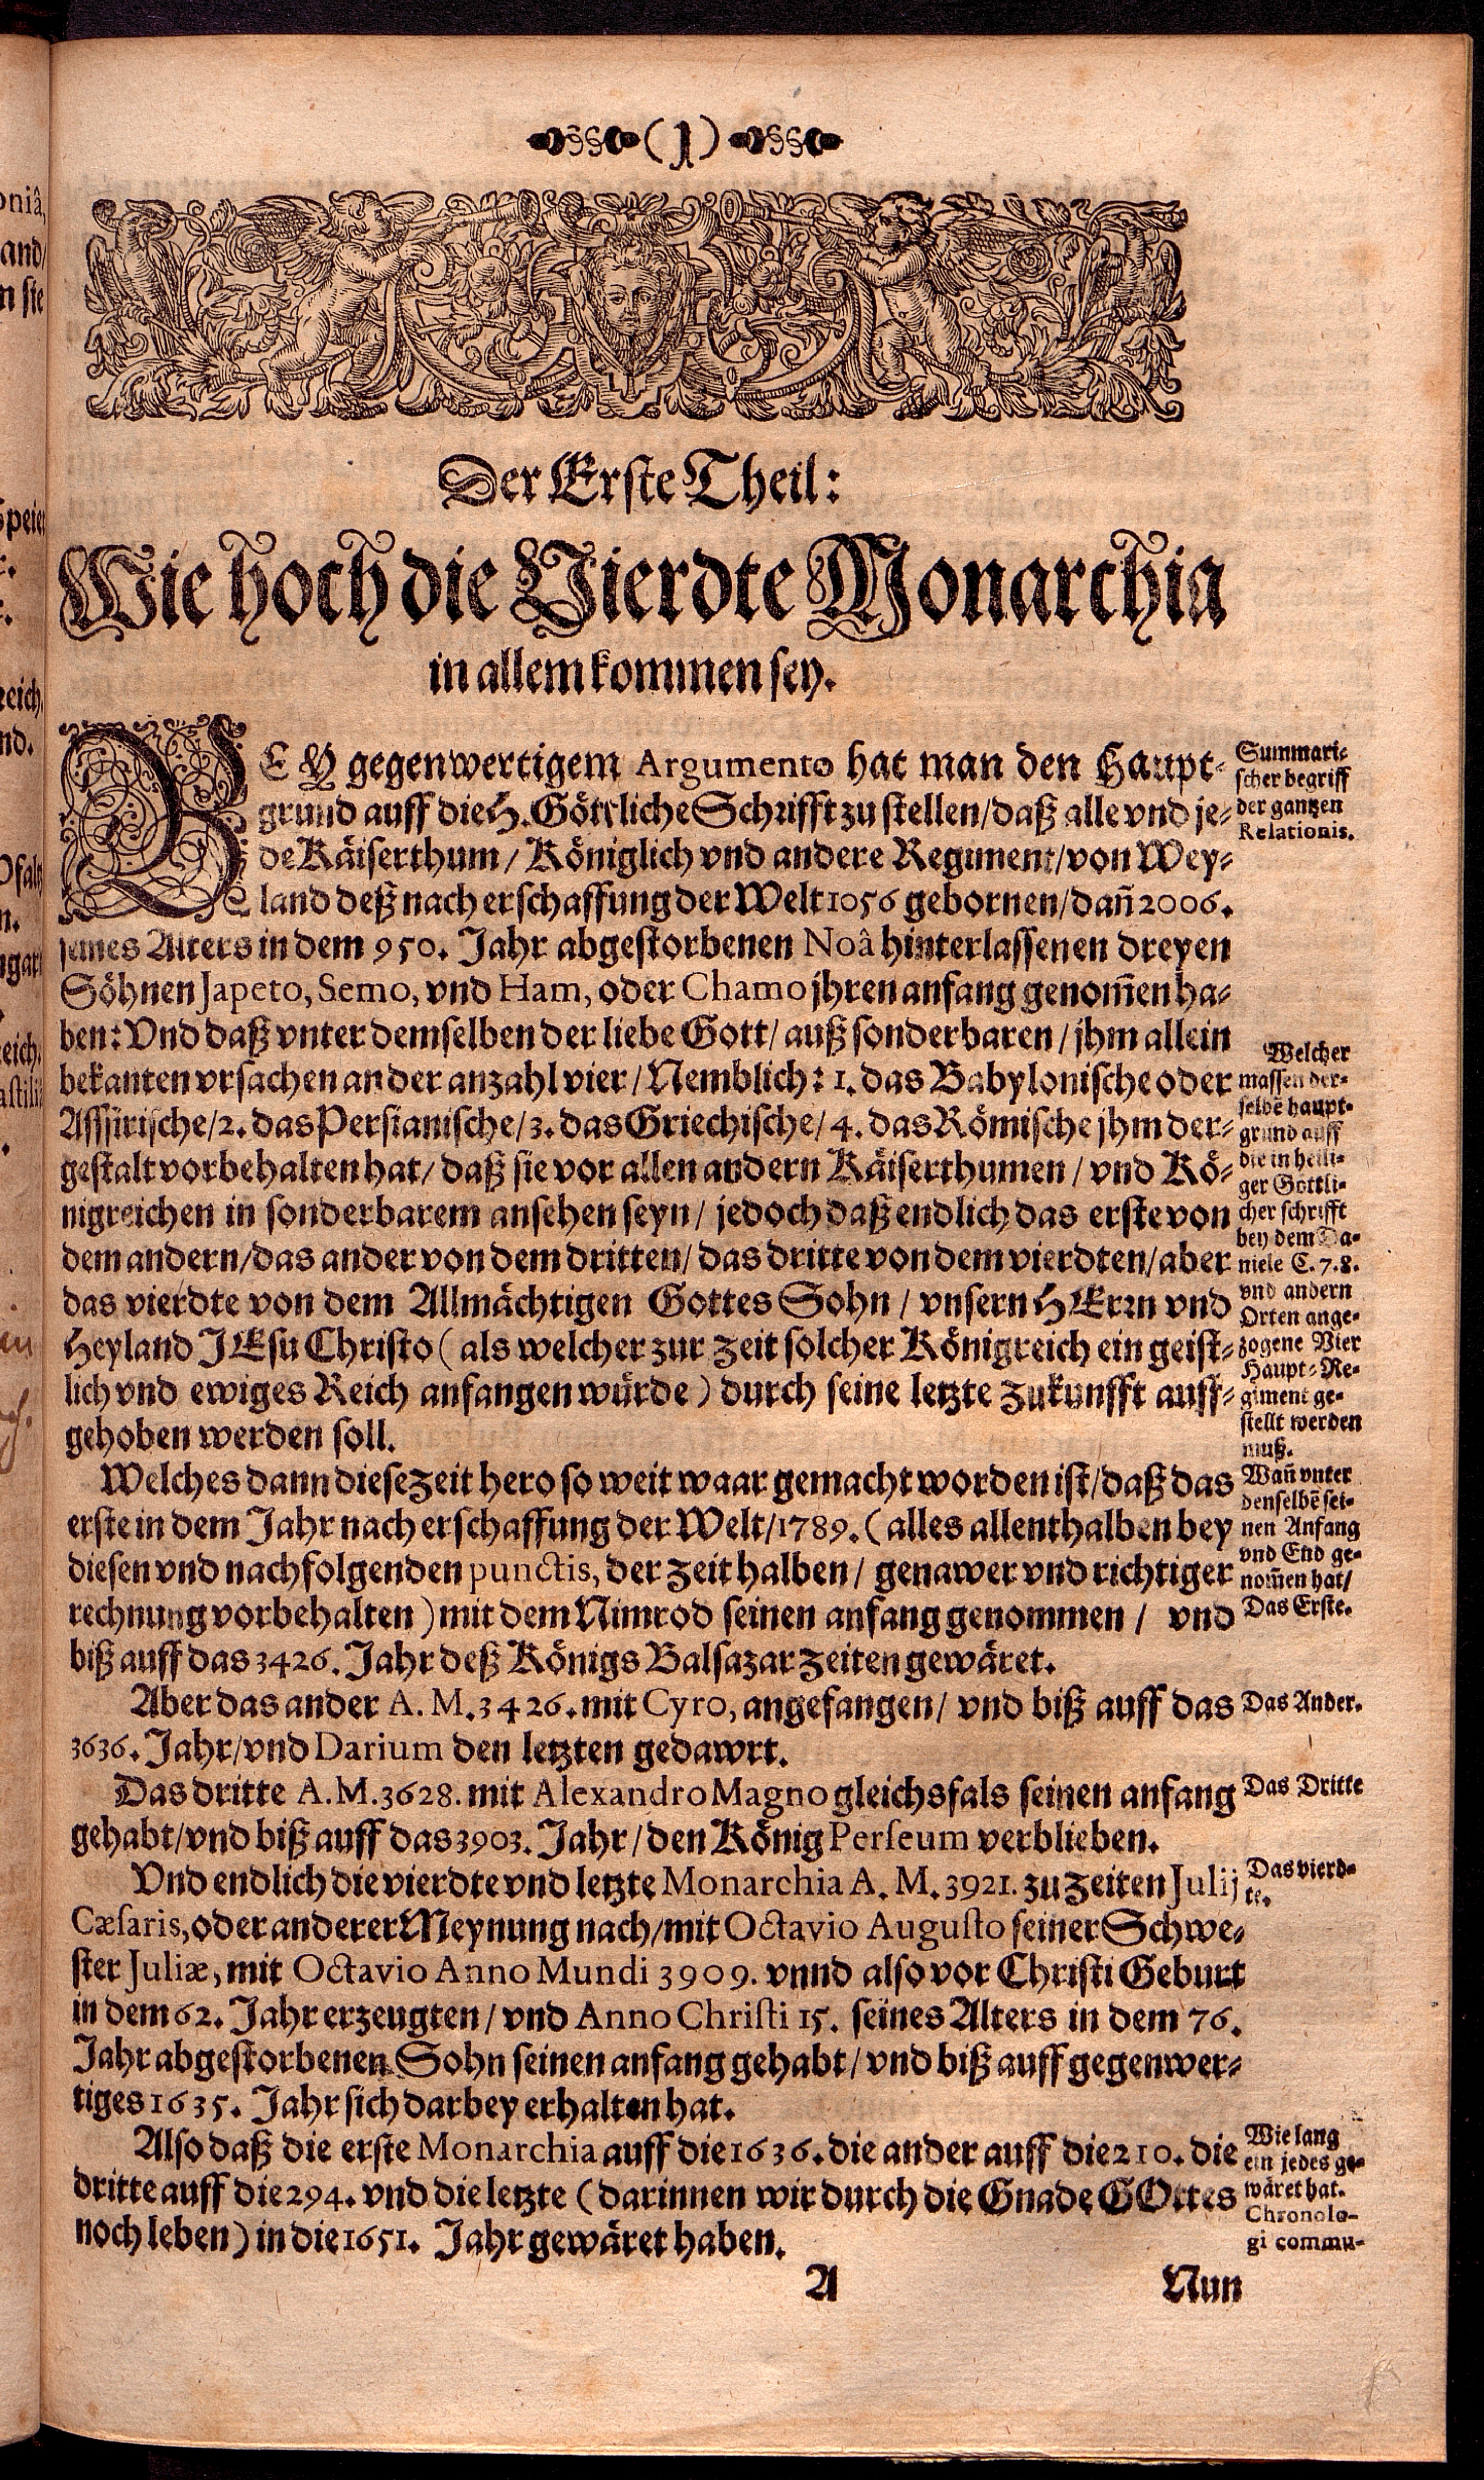 (1)
Der Erste Theil:
Wie hoch die Vierdte Monarchia
in allem kommen sey.
BEY gegenwertigem Argumento hat man den Haupt-
grund auff die H. Göttliche Schrifft zu stellen/daß alle vnd je-
de Käiserthum/ Königlich vnd andere Regiment/von Wey-
land deß nach erschaffung der Welt 1056 gebornen/dañ 2006.
seines Alters in dem 950. Jahr abgestorbenen Noâ hinterlassenen dreyen
Söhnen Japeto, Semo, vnd Ham, oder Chamo jhren anfang genom̃en ha-
ben: Vnd daß vnter demselben der liebe Gott/ auß sonderbaren/ jhm allein
bekanten vrsachen an der anzahl vier/ Nemblich: 1. das Babylonische oder
Assirische/2. das Persianische/3. das Griechische/ 4. das Römische jhm der-
gestalt vorbehalten hat/ daß sie vor allen andern Käiserthumen/ vnd Kö-
nigreichen in sonderbarem ansehen seyn/ jedoch daß endlich das erste von
dem andern/das ander von dem dritten/ das dritte von dem vierdten/aber
das vierdte von dem Allmächtigen Gottes Sohn/ vnsern HErrn vnd
Heyland JEsu Christo (als welcher zur zeit solcher Königreich ein geist-
lich vnd ewiges Reich anfangen würde) durch seine letzte zukunfft auff-
gehoben werden soll.
Welches dann diese zeit hero so weit waar gemacht worden ist/daß das
erste in dem Jahr nach erschaffung der Welt/1789. (alles allenthalben bey
diesen vnd nachfolgenden punctis, der zeit halben/ genawer vnd richtiger
rechnung vorbehalten) mit dem Nimrod seinen anfang genommen/ vnd
biß auff das 3426. Jahr deß Königs Balsazar zeiten gewäret.
Aber das ander A. M. 3426. mit Cyro, angefangen/ vnd biß auff das
3636. Jahr/vnd Darium den letzten gedawrt.
Das dritte A. M. 3628. mit Alexandro Magno gleichsfals seinen anfang
gehabt/vnd biß auff das 3903. Jahr/ den König Perseum verblieben.
Vnd endlich die vierdte vnd letzte Monarchia A. M. 3921. zu Zeiten Julij
Cæsaris, oder anderer Meynung nach/mit Octavio Augusto seiner Schwe-
ster Juliæ, mit Octavio Anno Mundi 3909. vnnd also vor Christi Geburt
in dem 62. Jahr erzeugten/ vnd Anno Christi 15. seines Alters in dem 76.
Jahr abgestorbenen Sohn seinen anfang gehabt/ vnd biß auff gegenwer-
tiges 1635. Jahr sich darbey erhalten hat.
Also daß die erste Monarchia auff die 1636. die ander auff die 210. die
dritte auff die 294. vnd die letzte (darinnen wir durch die Gnade GOttes
noch leben) in die 1651. Jahr gewäret haben.
A
Nun
Summari-
scher begriff
der gantzen
Relationis.
Welcher
massen der-
selbẽ haupt-
grund auff
die in heili-
ger Göttli-
cher schrifft
bey dem Da-
niele C. 7. 8.
vnd andern
Orten ange-
zogene Vier
Haupt-Re-
giment ge-
stellt werden
muß.
Wañ vnter
denselbẽ sei-
nen Anfang
vnd End ge-
nom̃en hat/
Das Erste.
Das Ander.
Das Dritte
Das vierd-
te.
Wie lang
ein jedes ge-
wäret hat.
Chronolo-
gi commu-